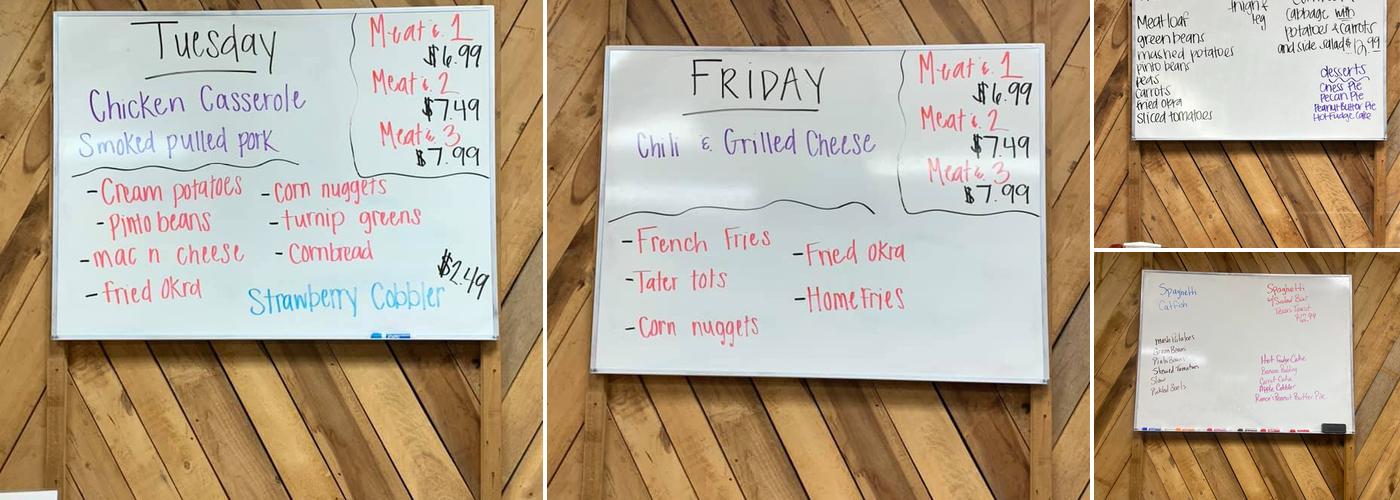 Tuesday
Chicken Casserole
Smoked pulled pork
Meat & 1
$6.99
Meat & 2
$7.49
Meat & 3
$7.99
-Cream potatoes
-Pinto beans
-mac n cheese
-fried okra
-corn nuggets
-turnip greens
-Cornbread
Strawberry Cobbler
$2.49
FRIDAY
Chili & Grilled Cheese
Meat & 1
$6.99
Meat & 2
$7.49
Meat & 3
$7.99
-French Fries
-Tater tots
-Corn nuggets
-Fried okra
-Home Fries
Meatloaf
green beans
mashed potatoes
pinto beans
peas
carrots
fried okra
sliced tomatoes
thigh &
leg
cabbage with
potatoes & carrots
and side salad $12.99
desserts
Chess Pie
Pecan Pie
Peanut Butter Pie
Hot Fudge Cake
Spaghetti
Catfish
Mash Potatoes
Green Beans
Pinto Beans
Stewed Tomatoes
Slaw
Pickled Beets
Spaghetti
w/Salad Bar
Texas Toast
Hot Fudge Cake
Banana Pudding
Carrot Cake
Apple Cobbler
Peanut Butter Pie